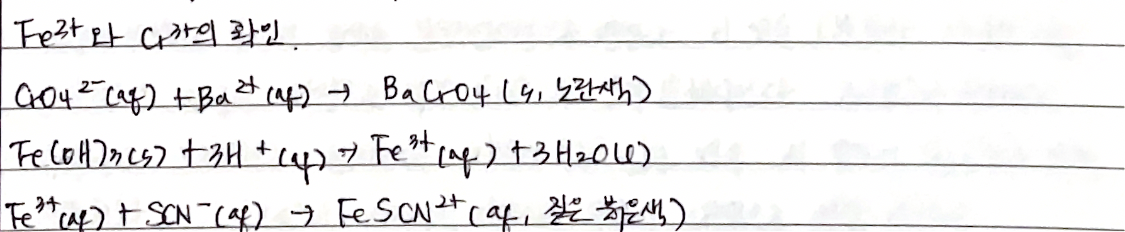 Fe³⁺와 Cr³⁺의 확인.
CrO4²⁻(aq) + Ba²⁺(aq) → BaCrO4(s, 노란색)
Fe(OH)3(s) + 3H⁺(aq) → Fe³⁺(aq) + 3H2O(l)
Fe³⁺(aq) + SCN⁻(aq) → FeSCN²⁺(aq, 짙은 붉은색)